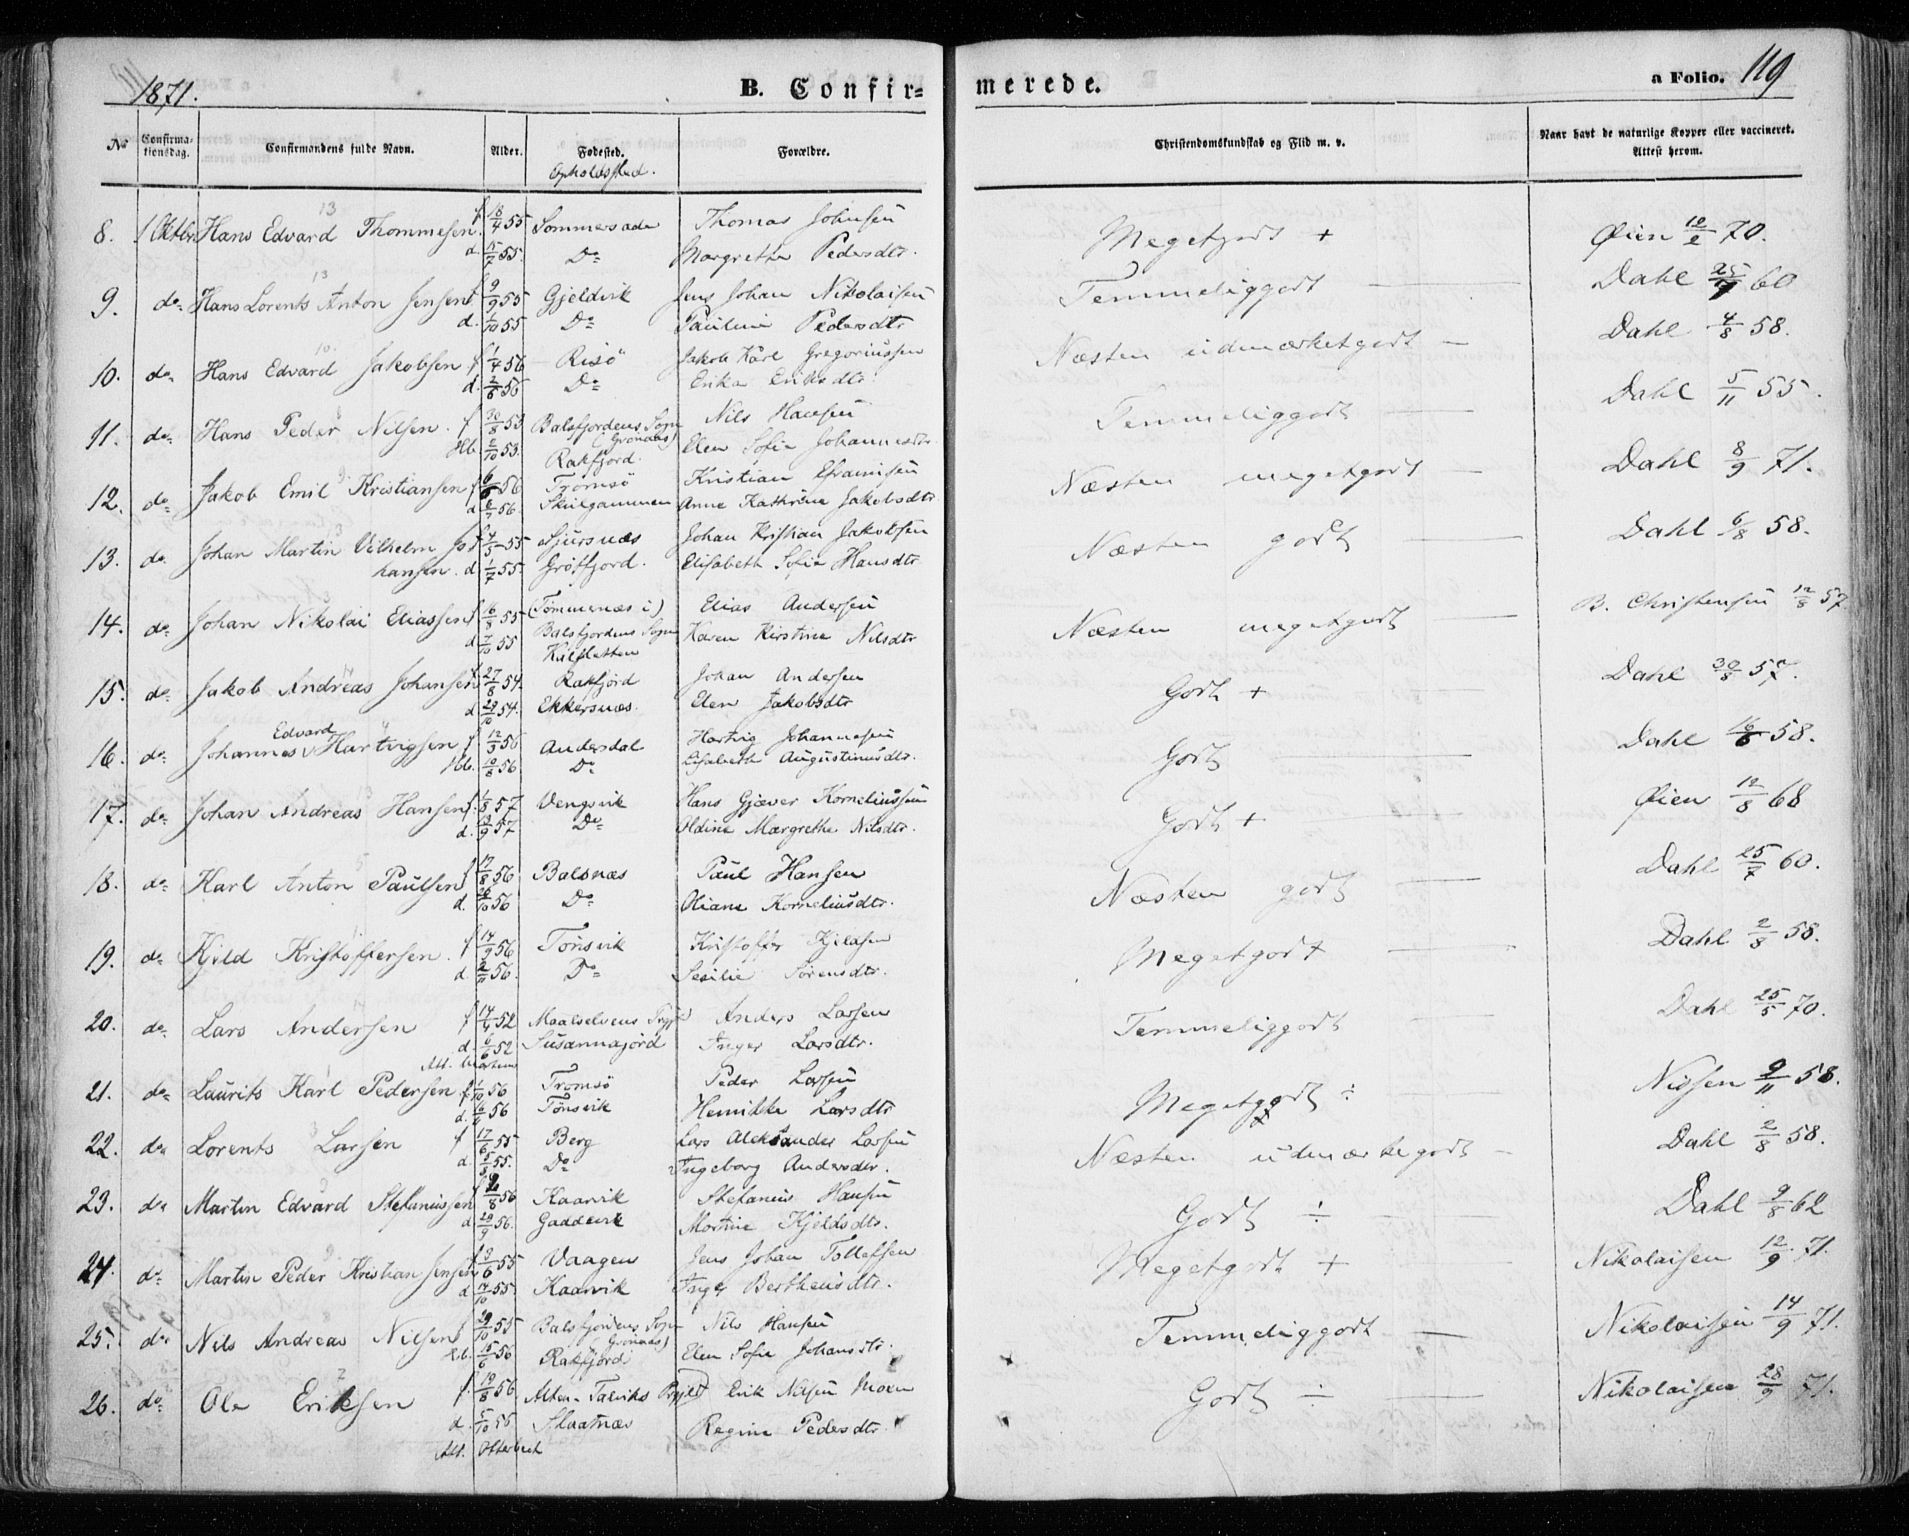 1871.
B. Confir-
merede.
a Folio. 119
No
Confirma-
tionsdag.
Confirmandens fulde Navn.
Alder.
Fødested.
Opholdssted.
Forældre.
Christendomskundskab og Flid m. v.
Naar havt de naturlige Kopper eller vaccineret.
Attest herom.
8. 1 Oktbr Hans Edvard Thommesen. f 18/4 55 Sommersade Thomas Johnsen Megetgodt + Øien 10/2 70.
d. 15/7 55. Do Margrethe Pedersdtr.
9. do Hans Lorents Anton Jensen f 9/9 55 Gjeldvik Jens Johan Nikolaisen Temmeliggodt — Dahl 25/7 60
d. 1/10 55 Do Pauline Pedersdtr
10. do Hans Edvard Jakobsen f 1/4 56 Risö Jakob Karl Gregoriussen Næsten udmærketgodt — Dahl 4/8 58.
d. 2/6 56 Do Erika Eriksdtr.
11. do Hans Peder Nilsen. f 30/8 53 Balsfjordens Sogn Nils Hansen Temmeliggodt — Dahl 5/11 55.
(Grönaas)
Hb. 2/10 53. Rakfjord. Elen Sofie Johannesdtr.
12. do Jakob Emil Kristiansen f 6/6 56 Tromsö Kristian Efraimsen Næsten megetgodt — Dahl 8/9 71.
d 6/7 56. Skulgammen Anne Kathrine Jakobsdtr
13. do Johan Martin Vilhelm Jo- f 4/5 55 Sjursnæs Johan Kristian Jakobsen Næsten godt — Dahl 6/8 58.
hansen. d 1/7 55. Gröttfjord. Elisabeth Sofie Hansdtr
14. do Johan Nikolai Eliassen f 16/8 55 (Tømmernæs i) Elias Andersen Næsten megetgodt — B. Christensen 12/8 57
d 7/10 55 Balsfjordens Sogn Karen Kirstine Nilsdtr
Kalsletten
15. do Jakob Andreas Johansen f 27/8 54. Rakfjord Johan Andersen Godt + Dahl 30/8 57.
d 29/10 54. Ekkersnæs. Elen Jakobsdtr
Edvard
16. do Johannes Hartvigsen f 12/5 56 Andersdal Hartvig Johannesen Godt — Dahl 16/6 58.
Hb. 10/8 56 Do Elisabeth Augustinusdtr.
17. do Johan Andreas Hansen f. 1/8 57 Vengsvik Hans Gjæver Korneliussen Godt + Øien 12/8 68
d. 13/9 57 Do Oldine Margrethe Nilsdtr.
18. do Karl Anton Paulsen f 17/8 56 Balsnæs Paul Hansen Næsten godt — Dahl 25/7 60.
d. 26/10 56 Do Oliane Korneliusdtr.
19. do Kjeld Kristoffersen. f 14/9 56 Tönsvik Kristoffer Kjeldsen Megetgodt — Dahl 2/8 58.
d. 2/11 56. Do Sesilie Sörensdtr.
20. do Lars Andersen f 14/4 52 Maalselvens Anders Larsen Temmeliggodt — Dahl 25/5 70.
d. 6/6 52 Susannajord Inger Larsdtr.
Att.
21. do Laurits Karl Pedersen f 1/10 56 Tromsö Peder Larsen Megetgodt ÷ Nissen 9/11 58.
d. 16/11 56 Tönsvik Henrikke Larsdtr
22. do Lorents Larsen f 17/6 55 Berg Lars Aleksander Larsen Næsten udmærketgodt — Dahl 2/8 58.
d. 5/8 55. Do Ingeborg Andersdtr.
23. do Martin Edvard Stefanussen f 2/8 56 Kaarvik Stefanus Hansen Godt ÷ Dahl 9/8 62
d 20/9 56. Gaddevik Martine Kjeldsdtr.
24. do Martin Peder Kristian Jensen f 3/6 55 Vaagen Jens Johan Tollefsen Megetgodt + Nikolaisen 12/9 71.
d 14/10 55 Kaarvik Inger Bertheusdtr.
25. do Nils Andreas Nilsen f 29/10 55 Balsfjordens Sogn Nils Hansen Temmeliggodt — Nikolaisen 14/9 71.
(Grönaas)
Hb. 15/6 56 Rakfjord Elen Sofie Johansdtr.
26. do Ole Eriksen f. 19/8 56 Alten-Talviks Prgjld Erik Nilsen Moen Godt ÷ Nikolaisen 28/9 71.
d. 5/10 56 Skaatnæs Regine Pedersdtr.
Att. Otterbech